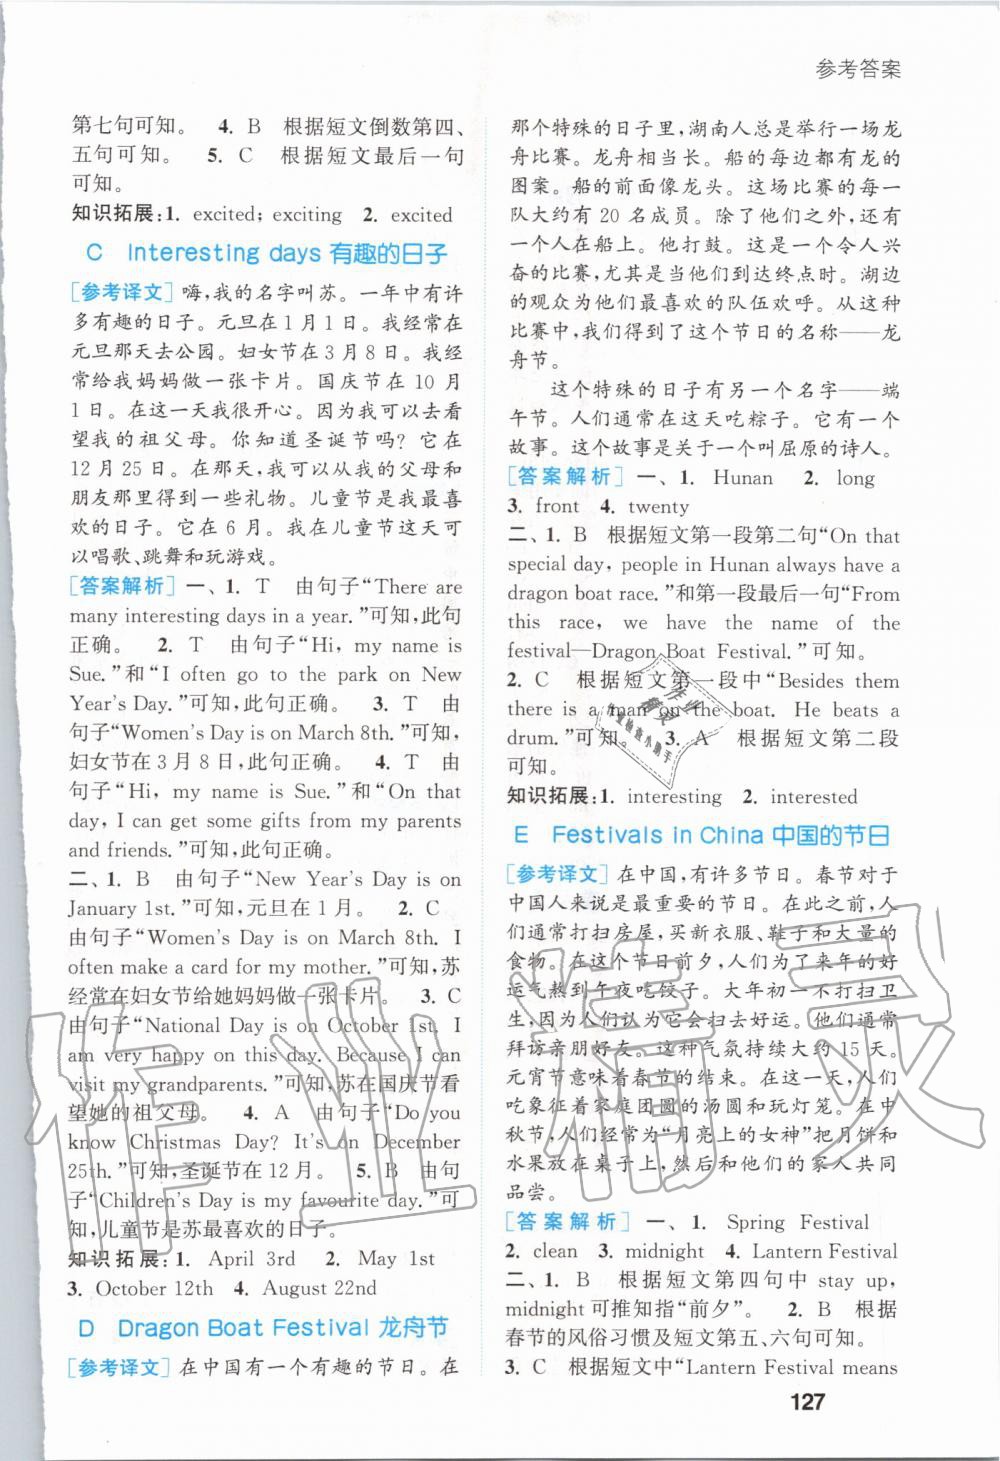 参考答案
第七句可知。 4. B 根据短文倒数第四、
五句可知。 5. C 根据短文最后一句
可知。
知识拓展:1. excited; exciting 2. excited
C Interesting days 有趣的日子
[参考译文] 嗨,我的名字叫苏。一年中有许
多有趣的日子。元旦在1月1日。我经常在
元旦那天去公园。妇女节在3月8日。我经
常给我妈妈做一张卡片。国庆节在10月
1日。在这一天我很开心。因为我可以去看
望我的祖父母。你知道圣诞节吗?它在
12月25日。在那天,我可以从我的父母和
朋友那里得到一些礼物。儿童节是我最喜
欢的日子。它在6月。我在儿童节这天可
以唱歌、跳舞和玩游戏。
[答案解析] 一、1. T 由句子“There are
many interesting days in a year.”可知,此句
正确。 2. T 由句子“Hi, my name is
Sue.”和“I often go to the park on New
Year's Day.”可知,此句正确。 3. T 由
句子“Women's Day is on March 8th.”可知,
妇女节在3月8日,此句正确。 4. T 由
句子“Hi, my name is Sue.”和“On that
day, I can get some gifts from my parents
and friends.”可知,此句正确。
二、1. B 由句子“New Year's Day is on
January 1st.”可知,元旦在1月。 2. C
由句子“Women's Day is on March 8th. I
often make a card for my mother.”可知,苏
经常在妇女节给她妈妈做一张卡片。 3. C
由句子“National Day is on October 1st. I
am very happy on this day. Because I can
visit my grandparents.”可知,苏在国庆节看
望她的祖父母。 4. A 由句子“Do you
know Christmas Day? It's on December
25th.”可知,圣诞节在12月。 5. B 由句
子“Children's Day is my favourite day.”可
知,儿童节是苏最喜欢的日子。
知识拓展:1. April 3rd 2. May 1st
3. October 12th 4. August 22nd
D Dragon Boat Festival 龙舟节
[参考译文] 在中国有一个有趣的节日。在
那个特殊的日子里,湖南人总是举行一场龙
舟比赛。龙舟相当长。船的每边都有龙的
图案。船的前面像龙头。这场比赛的每一
队大约有20名成员。除了他们之外,还有
一个人在船上。他打鼓。这是一个令人兴
奋的比赛,尤其是当他们到达终点时。湖边
的观众为他们最喜欢的队伍欢呼。从这种
比赛中,我们得到了这个节日的名称——龙
舟节。
这个特殊的日子有另一个名字——端
午节。人们通常在这天吃粽子。它有一个
故事。这个故事是关于一个叫屈原的诗人。
[答案解析] 一、1. Hunan 2. long
3. front 4. twenty
二、1. B 根据短文第一段第二句“On that
special day, people in Hunan always have a
dragon boat race.”和第一段最后一句“From
this race, we have the name of the
festival—Dragon Boat Festival.”可知。
2. C 根据短文第一段中“Besides them
there is a man on the boat. He beats a
drum.”可知。 3. A 根据短文第二段
可知。
知识拓展:1. interesting 2. interested
E Festivals in China 中国的节日
[参考译文] 在中国,有许多节日。春节对于
中国人来说是最重要的节日。在此之前,人
们通常打扫房屋,买新衣服、鞋子和大量的
食物。在这个节日前夕,人们为了来年的好
运气熬到午夜吃饺子。大年初一不打扫卫
生,因为人们认为它会扫去好运。他们通常
拜访亲朋好友。这种气氛持续大约15天。
元宵节意味着春节的结束。在这天,人们
吃象征着家庭团圆的汤圆和玩灯笼。在中
秋节,人们经常为“月亮上的女神”把月饼和
水果放在桌子上,然后和他们的家人共同
品尝。
[答案解析] 一、1. Spring Festival
2. clean 3. midnight 4. Lantern Festival
二、1. B 根据短文第四句中 stay up,
midnight 可推知指“前夕”。 2. B 根据
春节的风俗习惯及短文第五、六句可知。
3. C 根据短文中“Lantern Festival means
127
作业精灵